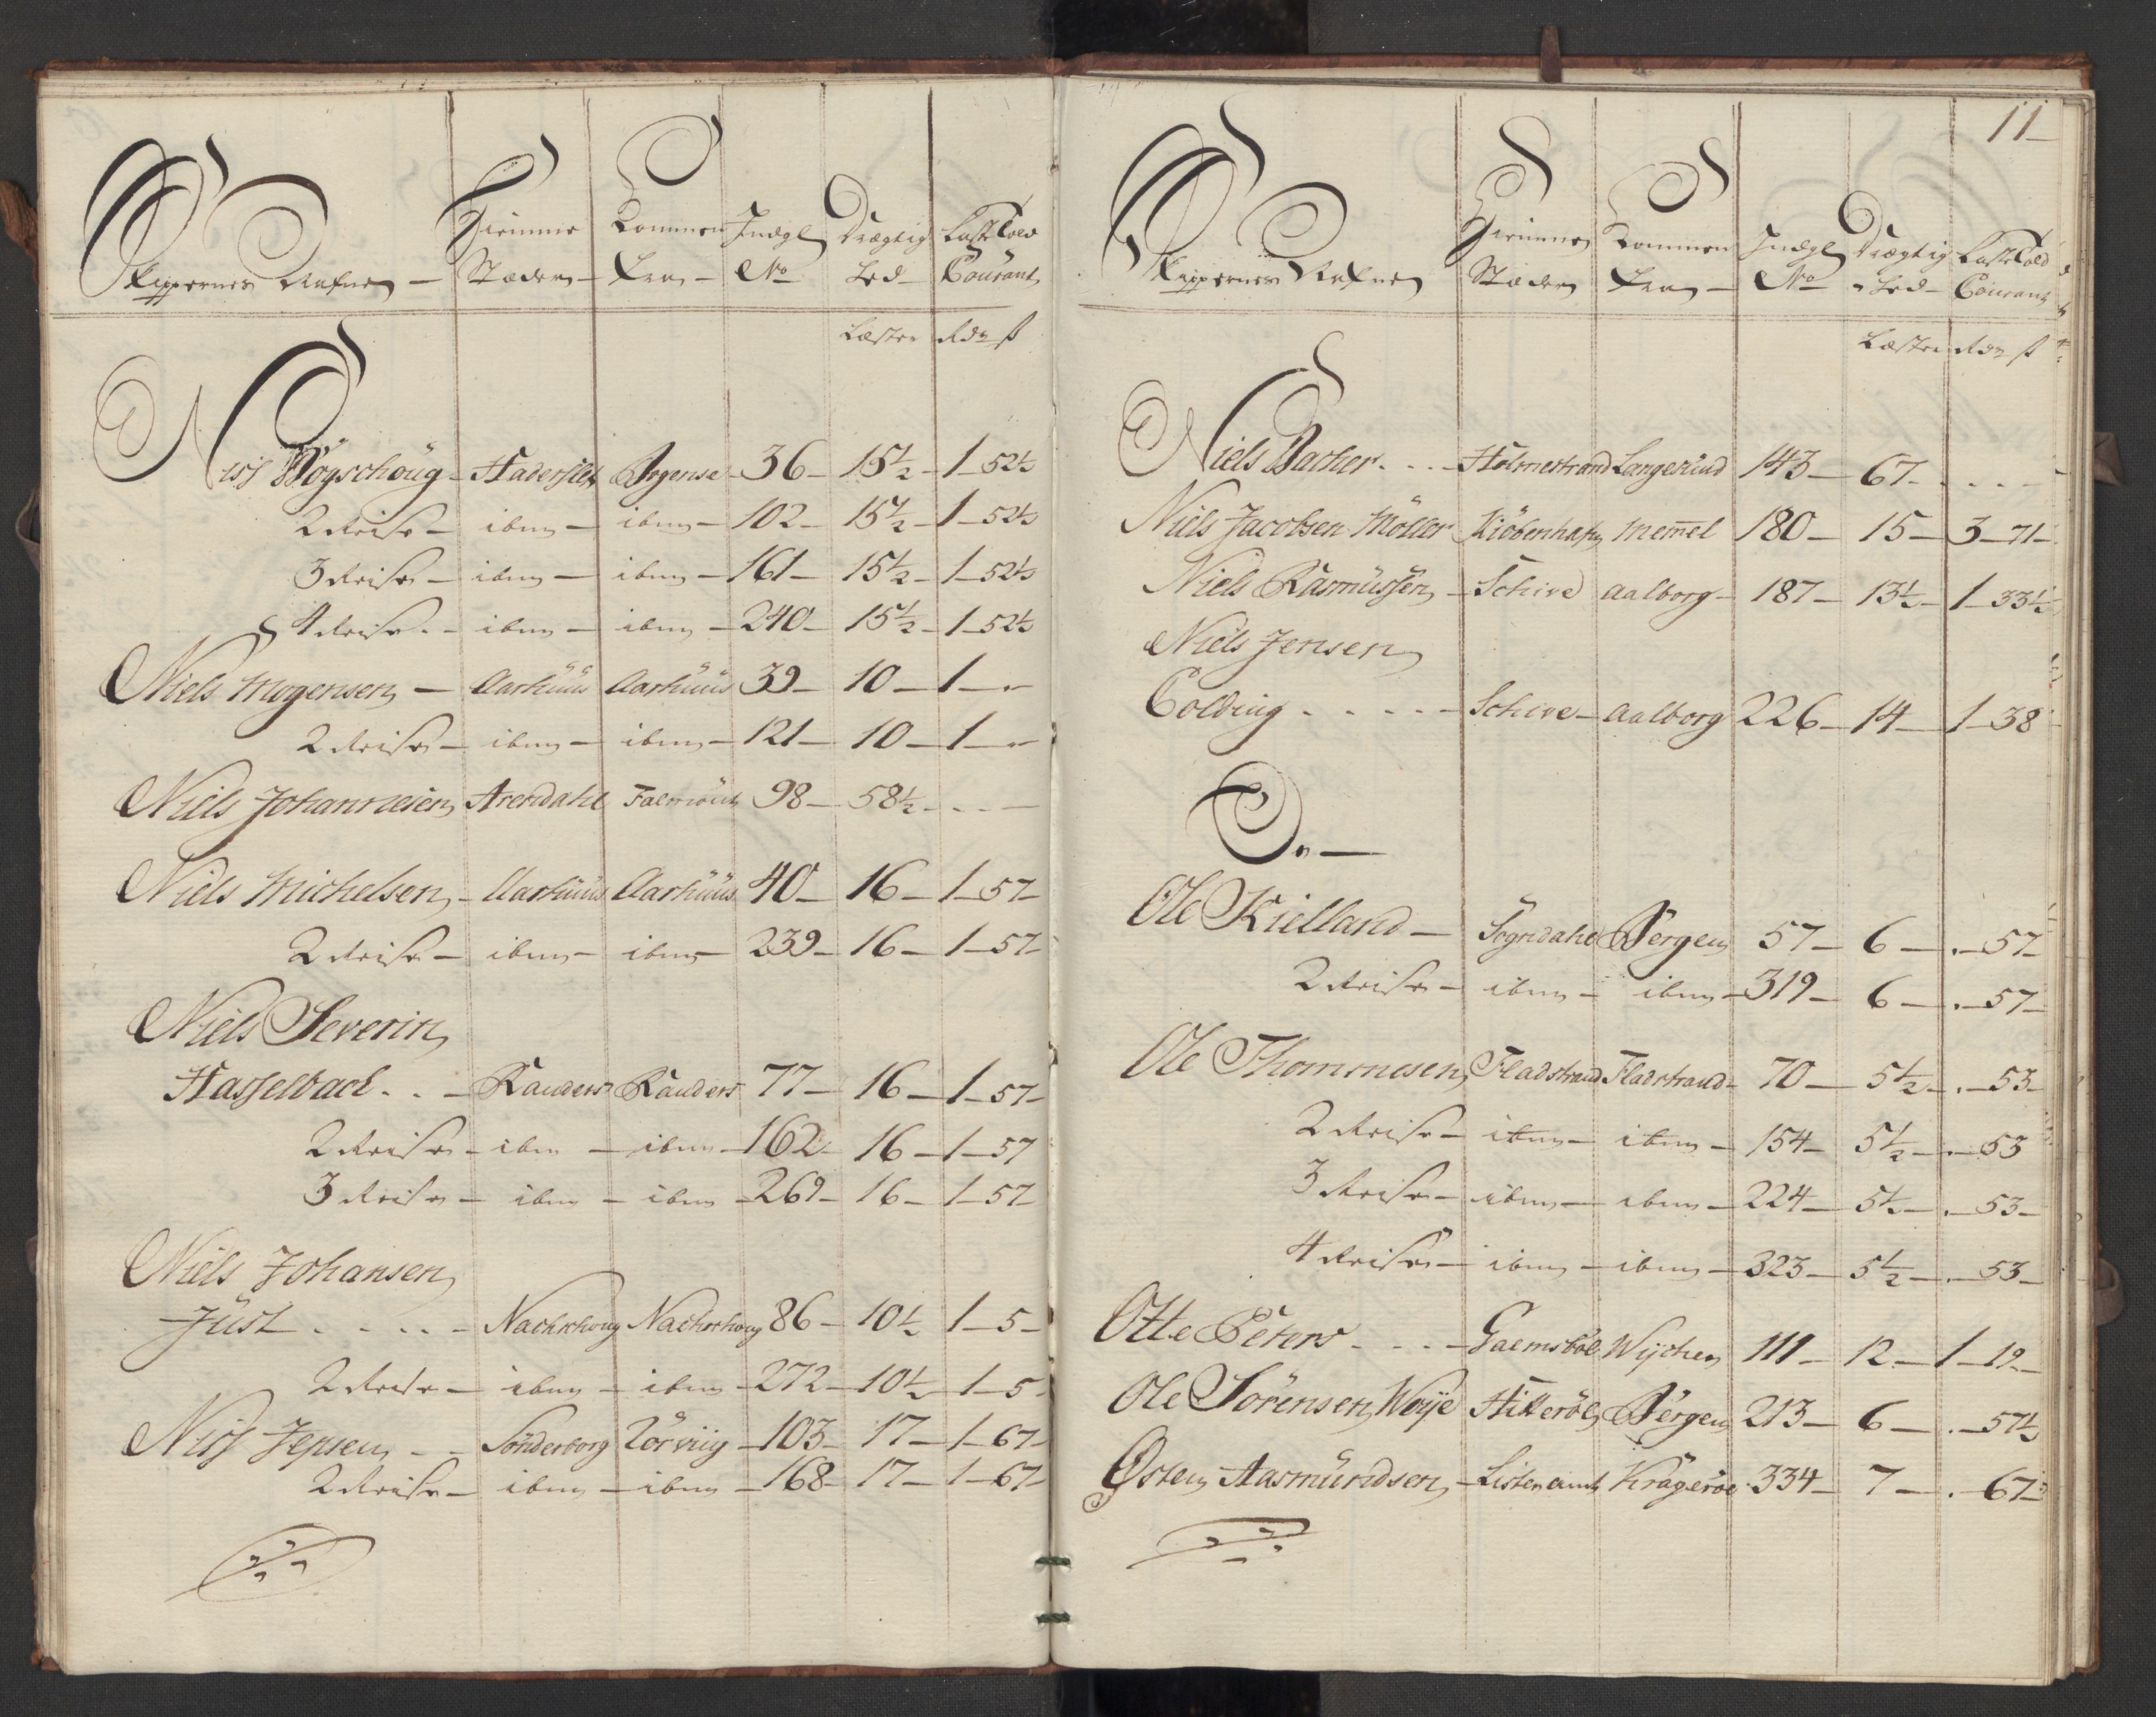 Skippernes Nafne — Hiemme Stæder — Kommen Fra — Indgl No Drægtighed Læstetold Courant
Læster Rdr ß
Nis Høgschoug — Haderslev Bogense — 36 — 15½ — 1 — 52½
2 Reise — ibm — ibm — 102 — 15½ — 1 — 52½
3 Reise — ibm — ibm — 161 — 15½ — 1 — 52½
4 Reise — ibm — ibm — 240 — 15½ — 1 — 52½
Niels Mogensen — Aarhuus Aarhuus 39 — 10 — 1 — "
2 Reise — ibm — ibm — 121 — 10 — 1 — "
Niels Johannesen Arendahl Falmouth 98 — 58½ - - -
Niels Michelsen — Aarhuus Aarhuus 40 — 16 — 1 — 57 —
2 Reise — ibm — ibm — 239 — 16 — 1 — 57 —
Niels Severin
Hasselback . . — Randers Randers 77 — 16 — 1 — 57 —
2 Reise — ibm — ibm — 162 — 16 — 1 — 57
3 Reise — ibm — ibm — 269 — 16 — 1 — 57 —
Niels Johansen
Just . . . . — Nachschoug Nachschoug 86 — 10½ 1 — 5 —
2 Reise — ibm — ibm — 272 — 10½ — 1 — 5 —
Nis Jepsen — Sönderborg Rörviig — 103 — 17 — 1 — 67 —
2 Reise — ibm — ibm — 168 — 17 — 1 — 67 —
11 —
Skippernes Nafne Hiemme Stæder Kommen Fra — Indgl No Drægtighed Læstetold Courant
Læster Rdr ß
Niels Bacher . . . — Holmestrand Langesund 143 — 67 - . . . .
Niels Jacobsen Möller Kiöbenhafn Memel 180 — 15 — 3 — 71 —
Niels Rasmussen — Schive Aalborg — 187 — 13½ — 1 — 33½
Niels Jensen
Colding . . . . — Schive — Aalborg 226 — 14 — 1 — 38
O. —
Ole Kielland — Sogndahl Bergen 57 — 6 — . — 57 —
2 Reise — ibm — ibm — 319 — 6 — . — 57 —
Ole Thommesen Fladstrand Fladstrand — 70 — 5½ — . — 53 —
2 Reise — ibm — ibm — 154 — 5½ — . — 53
3 Reise — ibm — ibm — 224 — 5½ — . — 53 —
4 Reise — ibm — ibm — 323 — 5½ — . — 53 —
Otte Peters . . . — Gaemsböl Wycher 111 — 12 — 1 — 19 —
Ole Sörensen Woye Hitteröe Bergen 213 — 6 — . — 57½
Østen Aasmundsen — Lister amt Krageröe 334 — 7 — . — 67 —